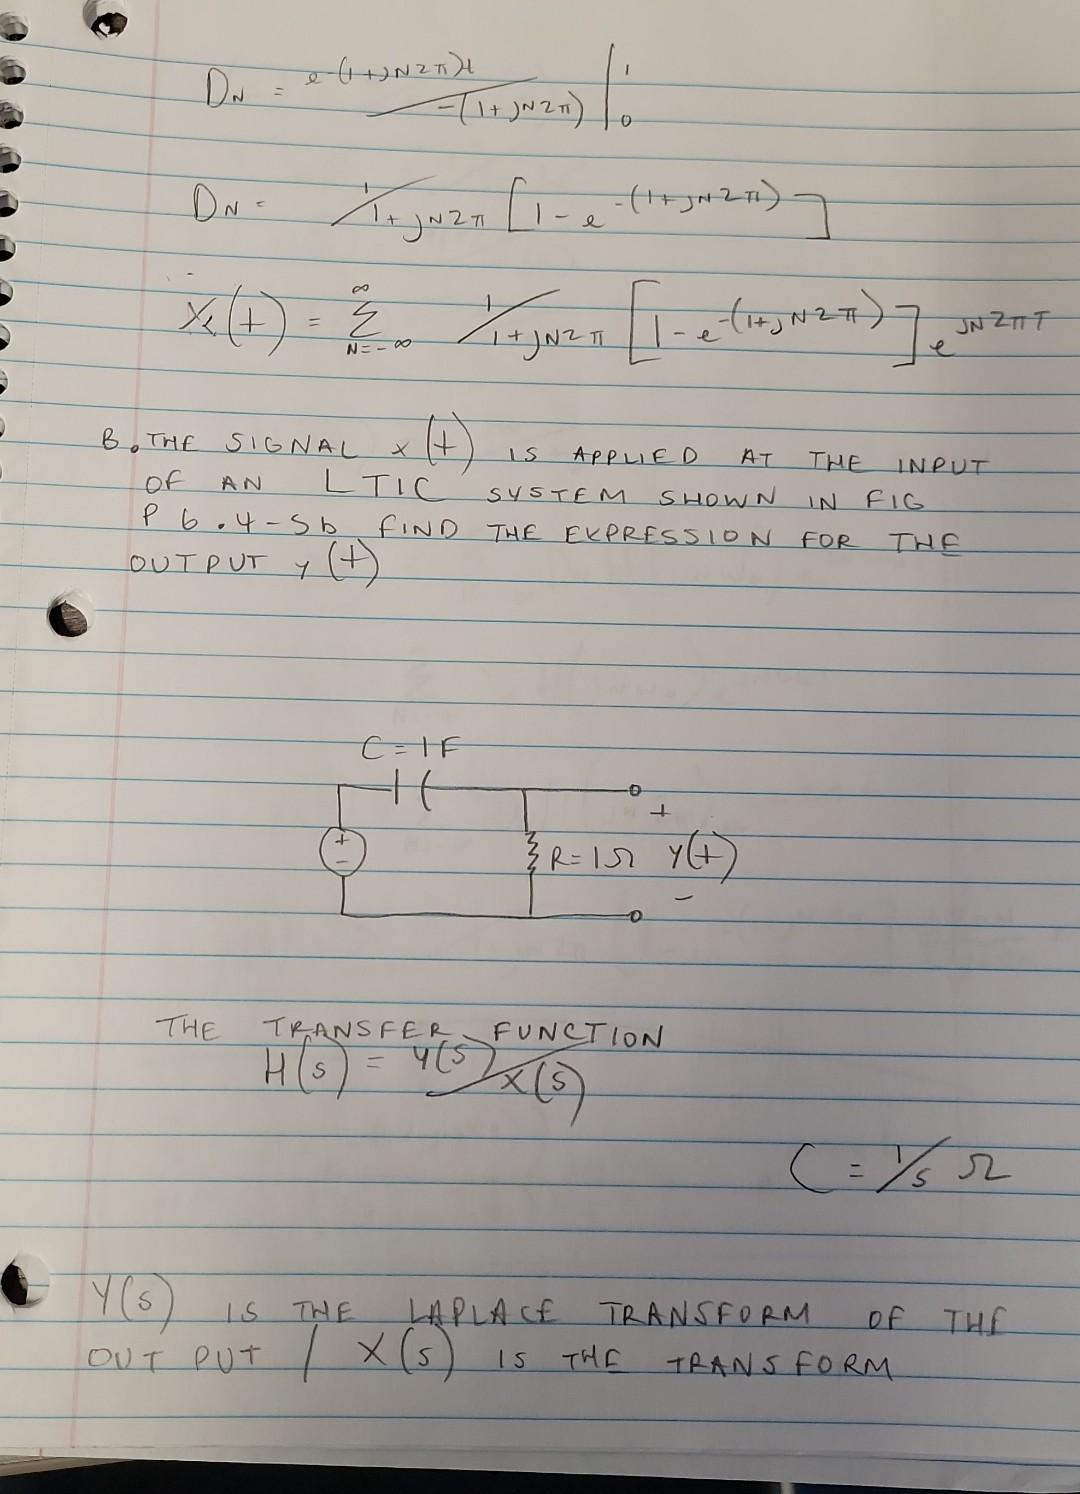 DN = e-(1+jN2π)t / -(1+jN2π) | 1 0
DN = 1/1+jN2π [1-e-(1+jN2π)]
(t) = ∞ Σ N=-∞ 1/1+jN2π [1-e-(1+jN2π)] e jN2πT
B. THE SIGNAL x(t) IS APPLIED AT THE INPUT
OF AN LTIC SYSTEM SHOWN IN FIG
P 6.4-5b FIND THE EXPRESSION FOR THE
OUTPUT y(t)
C = 1F
+
+
-
R=1Ω Y(t)
-
THE TRANSFER FUNCTION
H(s) = Y(s)/X(s)
C = 1/s Ω
Y(s) IS THE LAPLACE TRANSFORM OF THE
OUT PUT / X(s) IS THE TRANSFORM